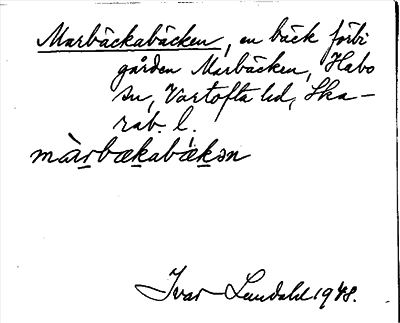 Marbäckabäcken, en bäck förbi
gården Marbäcken, Habo
sn, Vartofta hd, Ska-
rab. l.
màrbækabækən
Ivar Lundahl 1948.